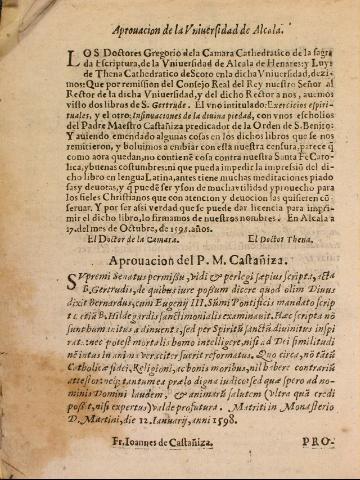 Aprouacion de la Vniuersidad de Alcala.
LOS Doctores Gregorio dela Camara Cathedratico de la sagra
da Escriptura, de la Vniuersidad de Alcala de Henares: y Luys
de Thena Cathedratico de Scoto en la dicha Vniuersidad, dezi-
mos: Que por remission del Consejo Real del Rey nuestro Señor al
Rector de la dicha Vniuersidad, y del dicho Rector a nos, auemos
visto dos libros de S. Gertrude. El vno intitulado: Exercicios espiri-
tuales, y el otro: Insinuaciones de la diuina piedad, con vnos escholios
del Padre Maestro Castañiza predicador de la Orden de S. Benito:
Y auiendo emendado algunas cosas en los dichos libros que se nos
remitieron, y boluimos a embiar con esta nuestra censura, parece q̃
como aora quedan, no contienẽ cosa contra nuestra Santa Fe Cato-
lica, y buenas costumbres: ni que pueda impedir la impresiõ del di-
cho libro en lengua Latina, antes tiene muchas meditaciones piado
sas y deuotas, y q̃ puedẽ ser y son de mucha vtilidad y prouecho para
los fieles Christianos que con atencion y deuocion las quisieren cõ-
seruar. Y por ser assi verdad que se puede dar licencia para impri-
mir el dicho libro, lo firmamos de nuestros nombres. En Alcala a
17. del mes de Octubre, de 1595. años.
El Doctor de la Camara. El Doctor Thena.
Aprouacion del P. M. Castañiza.
SVpremi Senatus permissu, vidi & perlegi sæpius scripta, acta
B. Gertrudis, de quibus iure possum dicere quod olim Diuus
dixit Bernardus, cum Eugenij III. Sũmi Pontificis mandato scrip
ta etiã B. Hildegardis sanctimonialis examinauit. Hæc scripta nõ
sunt humanitus adinuenta, sed per Spiritũ sanctũ diuinitus inspi
rata: nec potest mortalis homo intelligere, nisi ad Dei similitudi
nẽ intus in anima veraciter fuerit reformatus. Quo circa, nõ tãtũ
Catholicæ fidei, Religioni, ac bonis moribus, nil habere contrariũ
attestor: neq; tantum ea prælo digna iudico: sed quæ spero ad no-
minis Domini laudem, & animarũ salutem (vltra quã credi
possit, nisi expertus) valde profutura. Matriti in Monasterio
D. Martini, die 12. Ianuarij, anni 1598.
Fr. Ioannes de Castañiza. PRO-